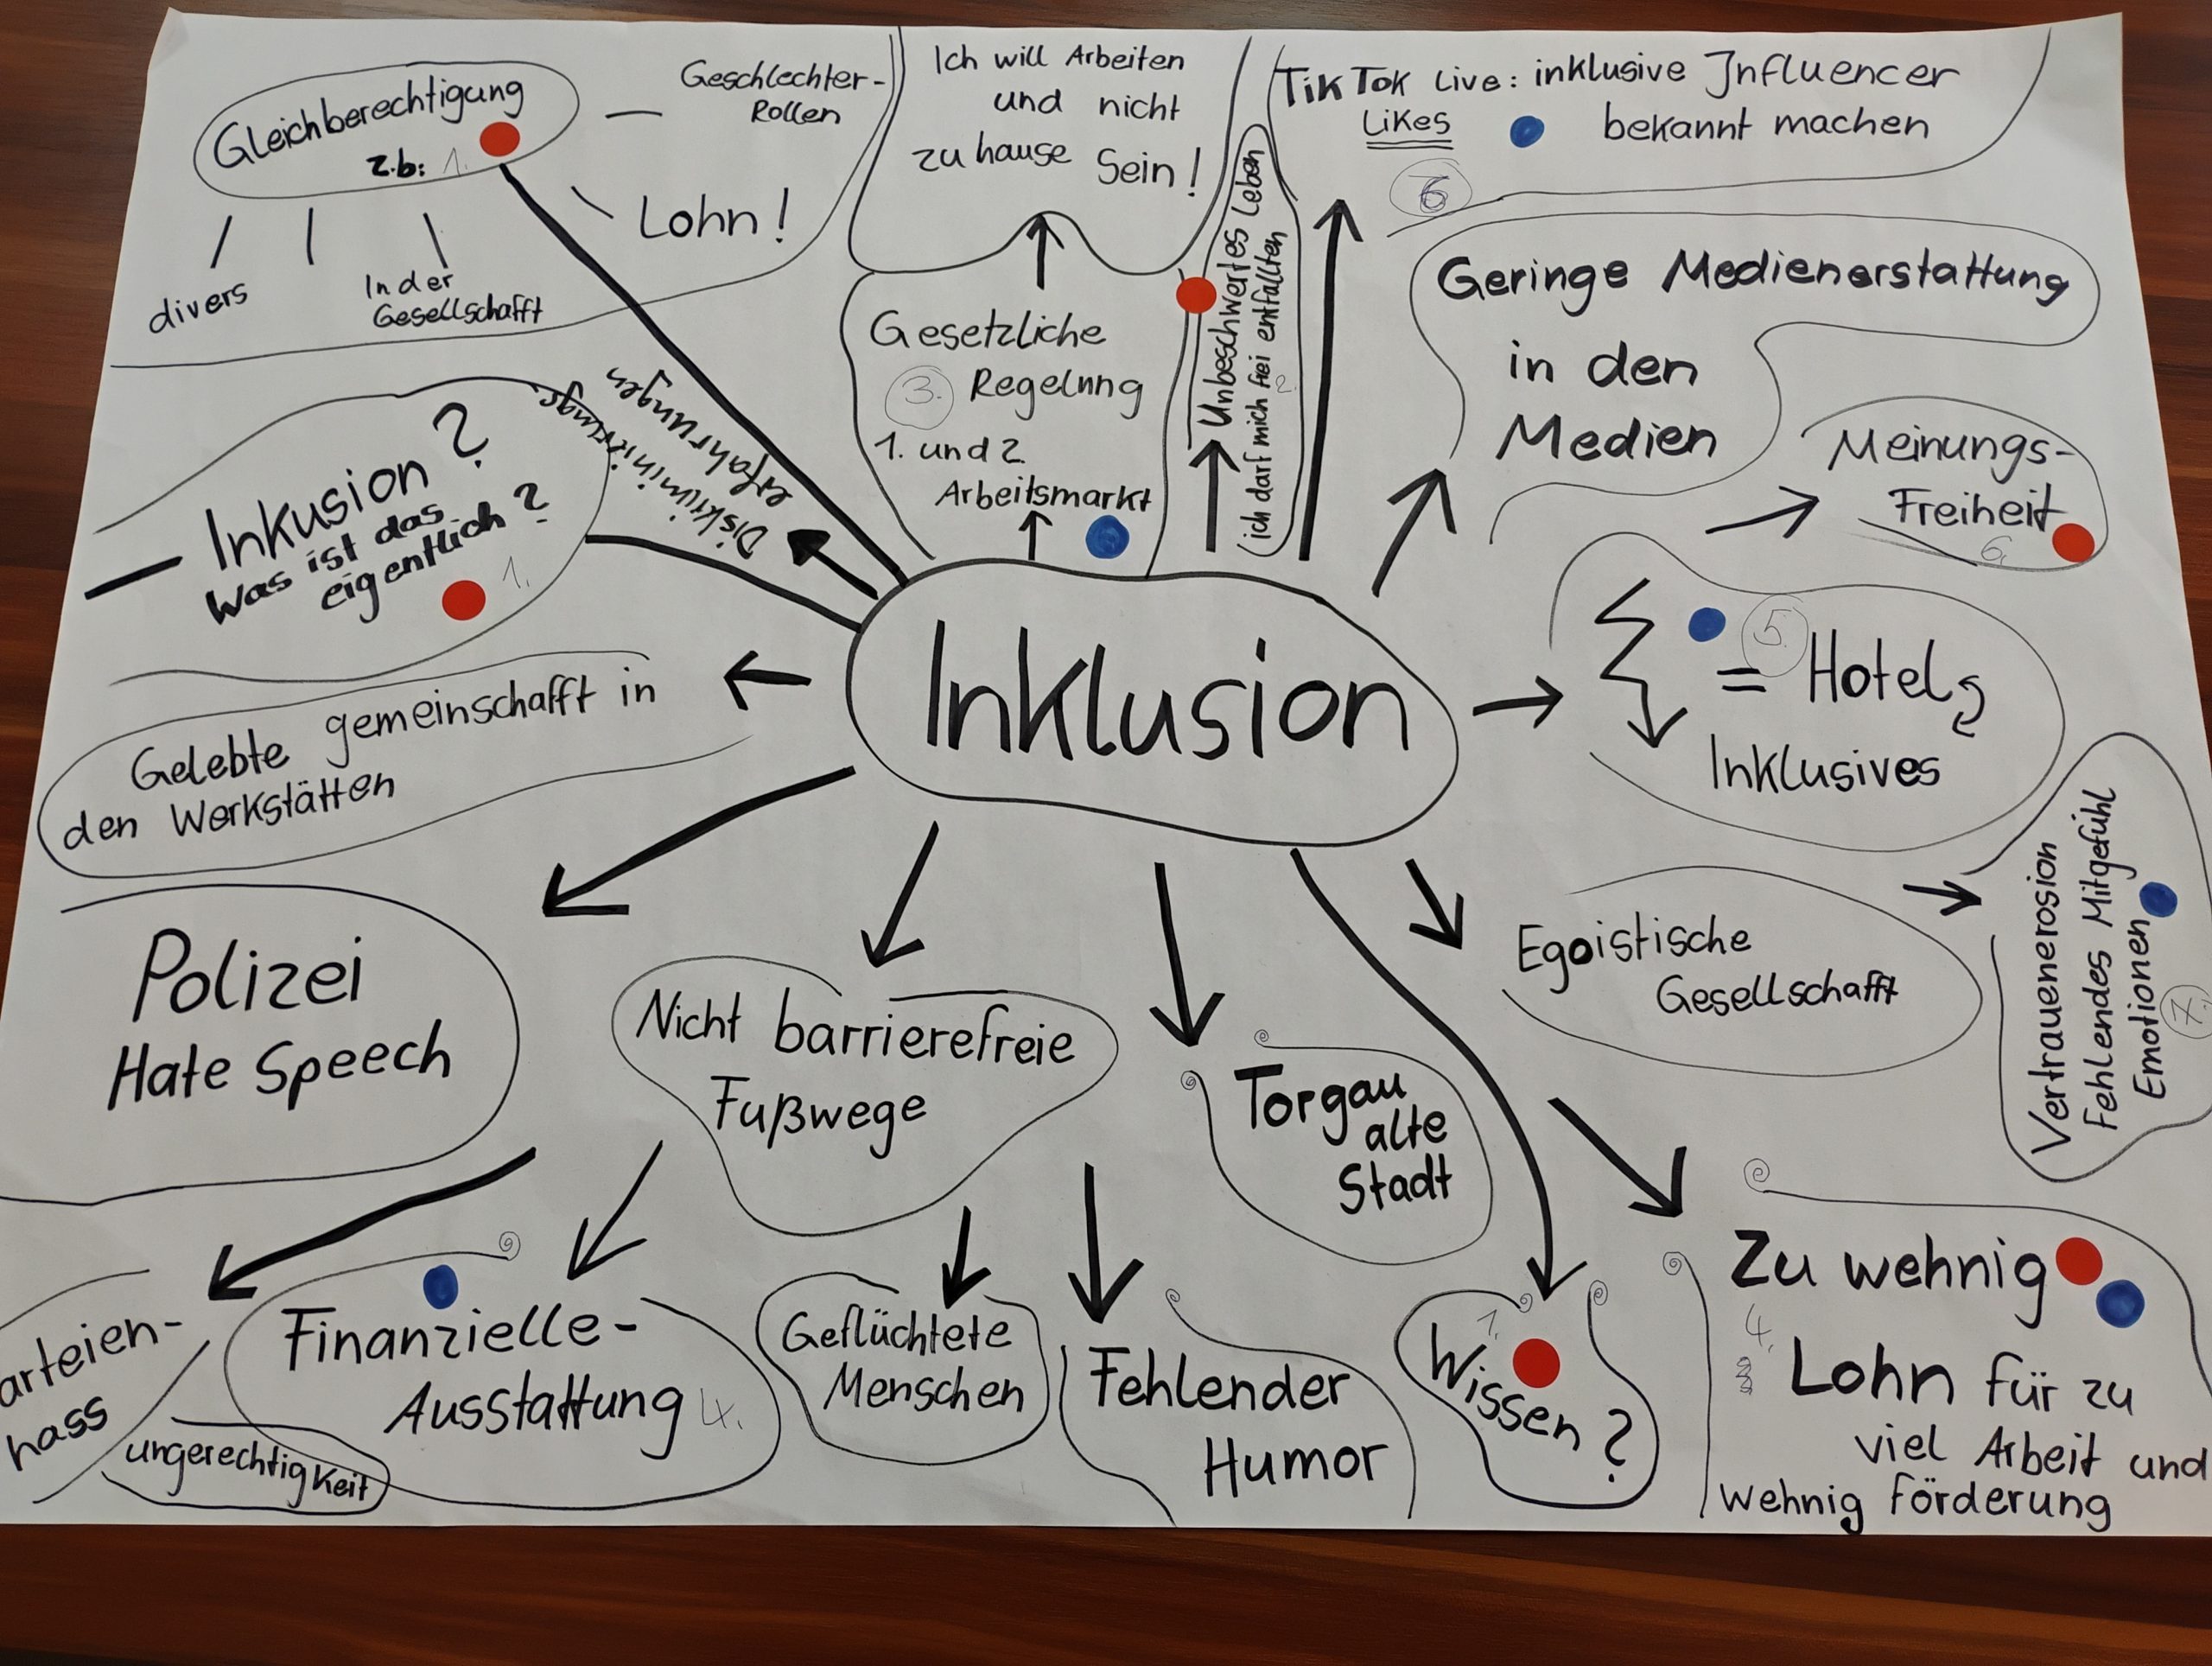 Gleichberechtigung
z.b: 1.
Geschlechter-
Rollen
Lohn!
divers
In der
Gesellschafft
Ich will Arbeiten
und nicht
zu hause Sein!
TikTok Live: inklusive Influencer
Likes bekannt machen
6
Gesetzliche
3. Regelung
1. und 2.
Arbeitsmarkt
Unbeschwertes Leben
ich darf mich frei entfallten
2.
Geringe Medienerstattung
in den
Medien
Meinungs-
Freiheit
6.
Diskriminierungs
erfahrungen
Inkusion?
Was ist das
eigentlich?
1.
Inklusion
5.
= Hotel
Inklusives
Gelebte gemeinschafft in
den Werkstätten
Polizei
Hate Speech
Nicht barrierefreie
Fußwege
Torgau
alte
Stadt
Egoistische
Gesellschafft
Vertrauenerosion
Fehlendes Mitgefühl
Emotionen
7.
arteien-
hass
ungerechtigkeit
Finanzielle-
Ausstattung 4.
Geflüchtete
Menschen
Fehlender
Humor
1.
Wissen?
Zu wehnig
4.
Lohn für zu
viel Arbeit und
wehnig förderung